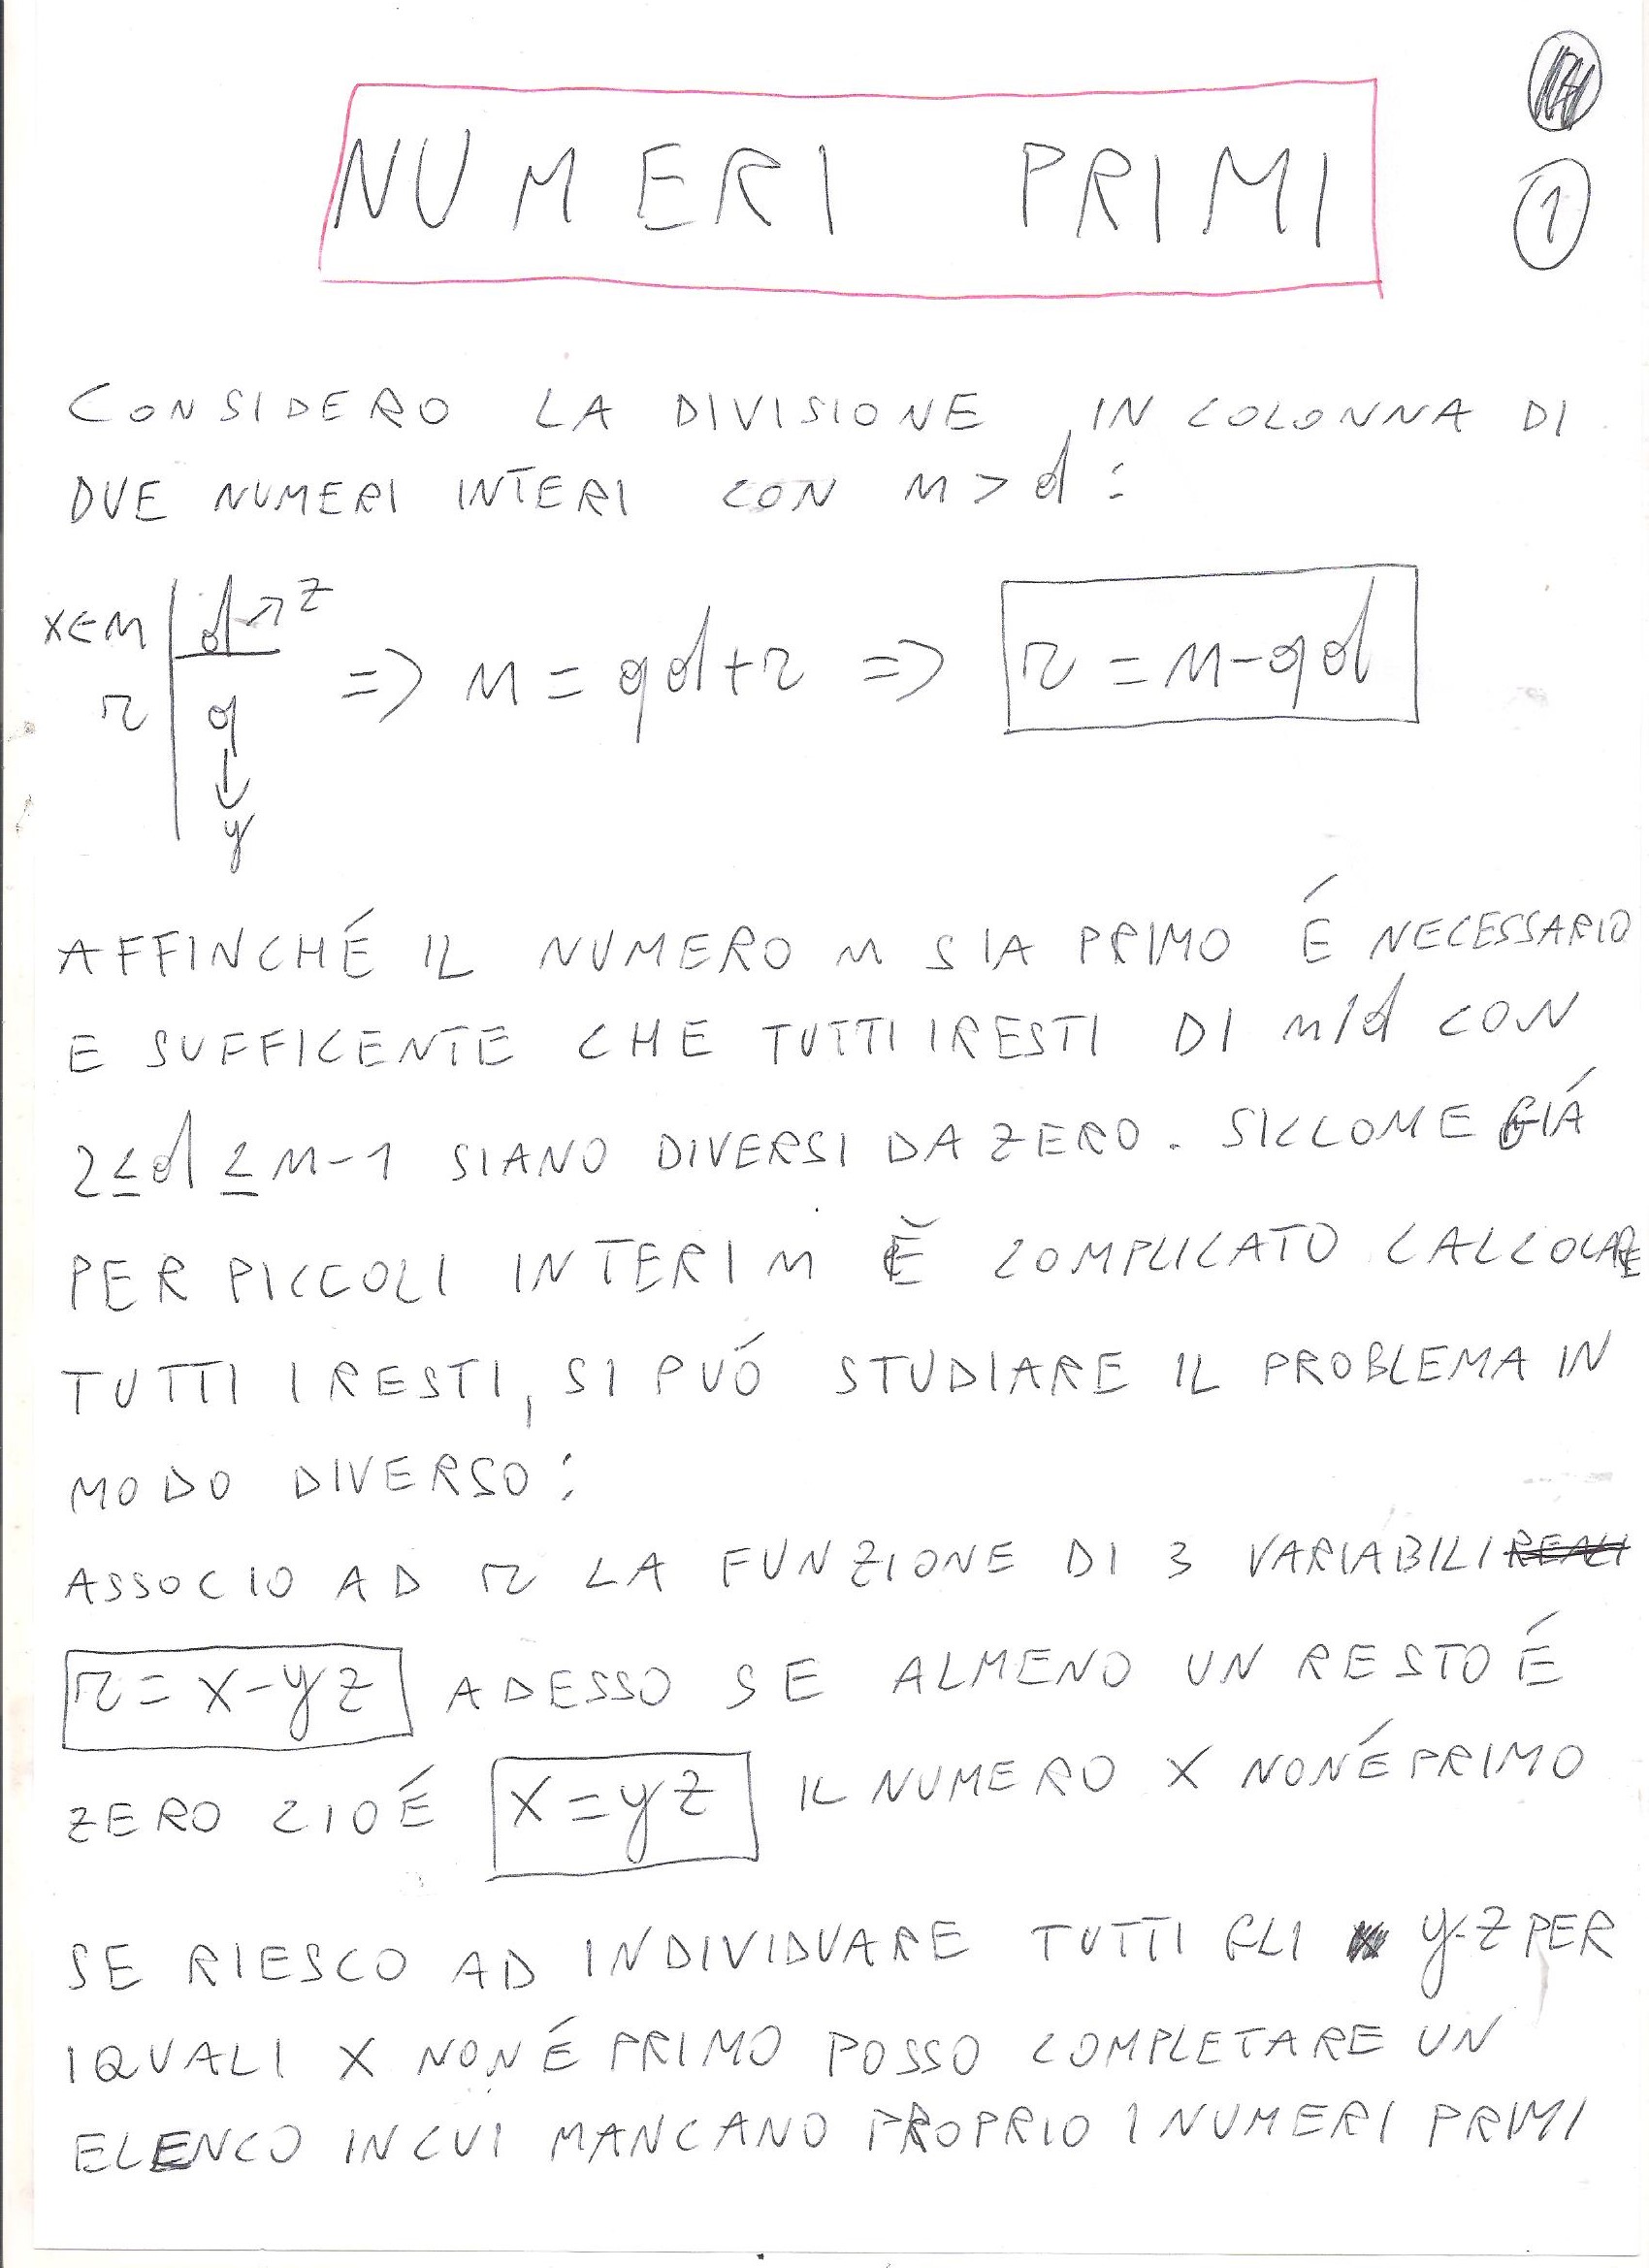 NUMERI PRIMI
1
CONSIDERO LA DIVISIONE IN COLONNA DI
DUE NUMERI INTERI CON n > d :
x ← n | d → z
r | q => n = qd + r => r = n - qd
↓
y
AFFINCHÉ IL NUMERO n SIA PRIMO É NECESSARIO
E SUFFICENTE CHE TUTTI I RESTI DI n/d CON
2 ≤ d ≤ n-1 SIANO DIVERSI DA ZERO. SICCOME GIÁ
PER PICCOLI INTERI n È COMPLICATO CALCOLARE
TUTTI I RESTI, SI PUÓ STUDIARE IL PROBLEMA IN
MODO DIVERSO:
ASSOCIO AD r LA FUNZIONE DI 3 VARIABILI REALI
r = x - yz ADESSO SE ALMENO UN RESTO É
ZERO CIOÉ x = yz IL NUMERO X NON É PRIMO
SE RIESCO AD INDIVIDUARE TUTTI GLI y·z PER
I QUALI X NON É PRIMO POSSO COMPLETARE UN
ELENCO IN CUI MANCANO PROPRIO I NUMERI PRIMI